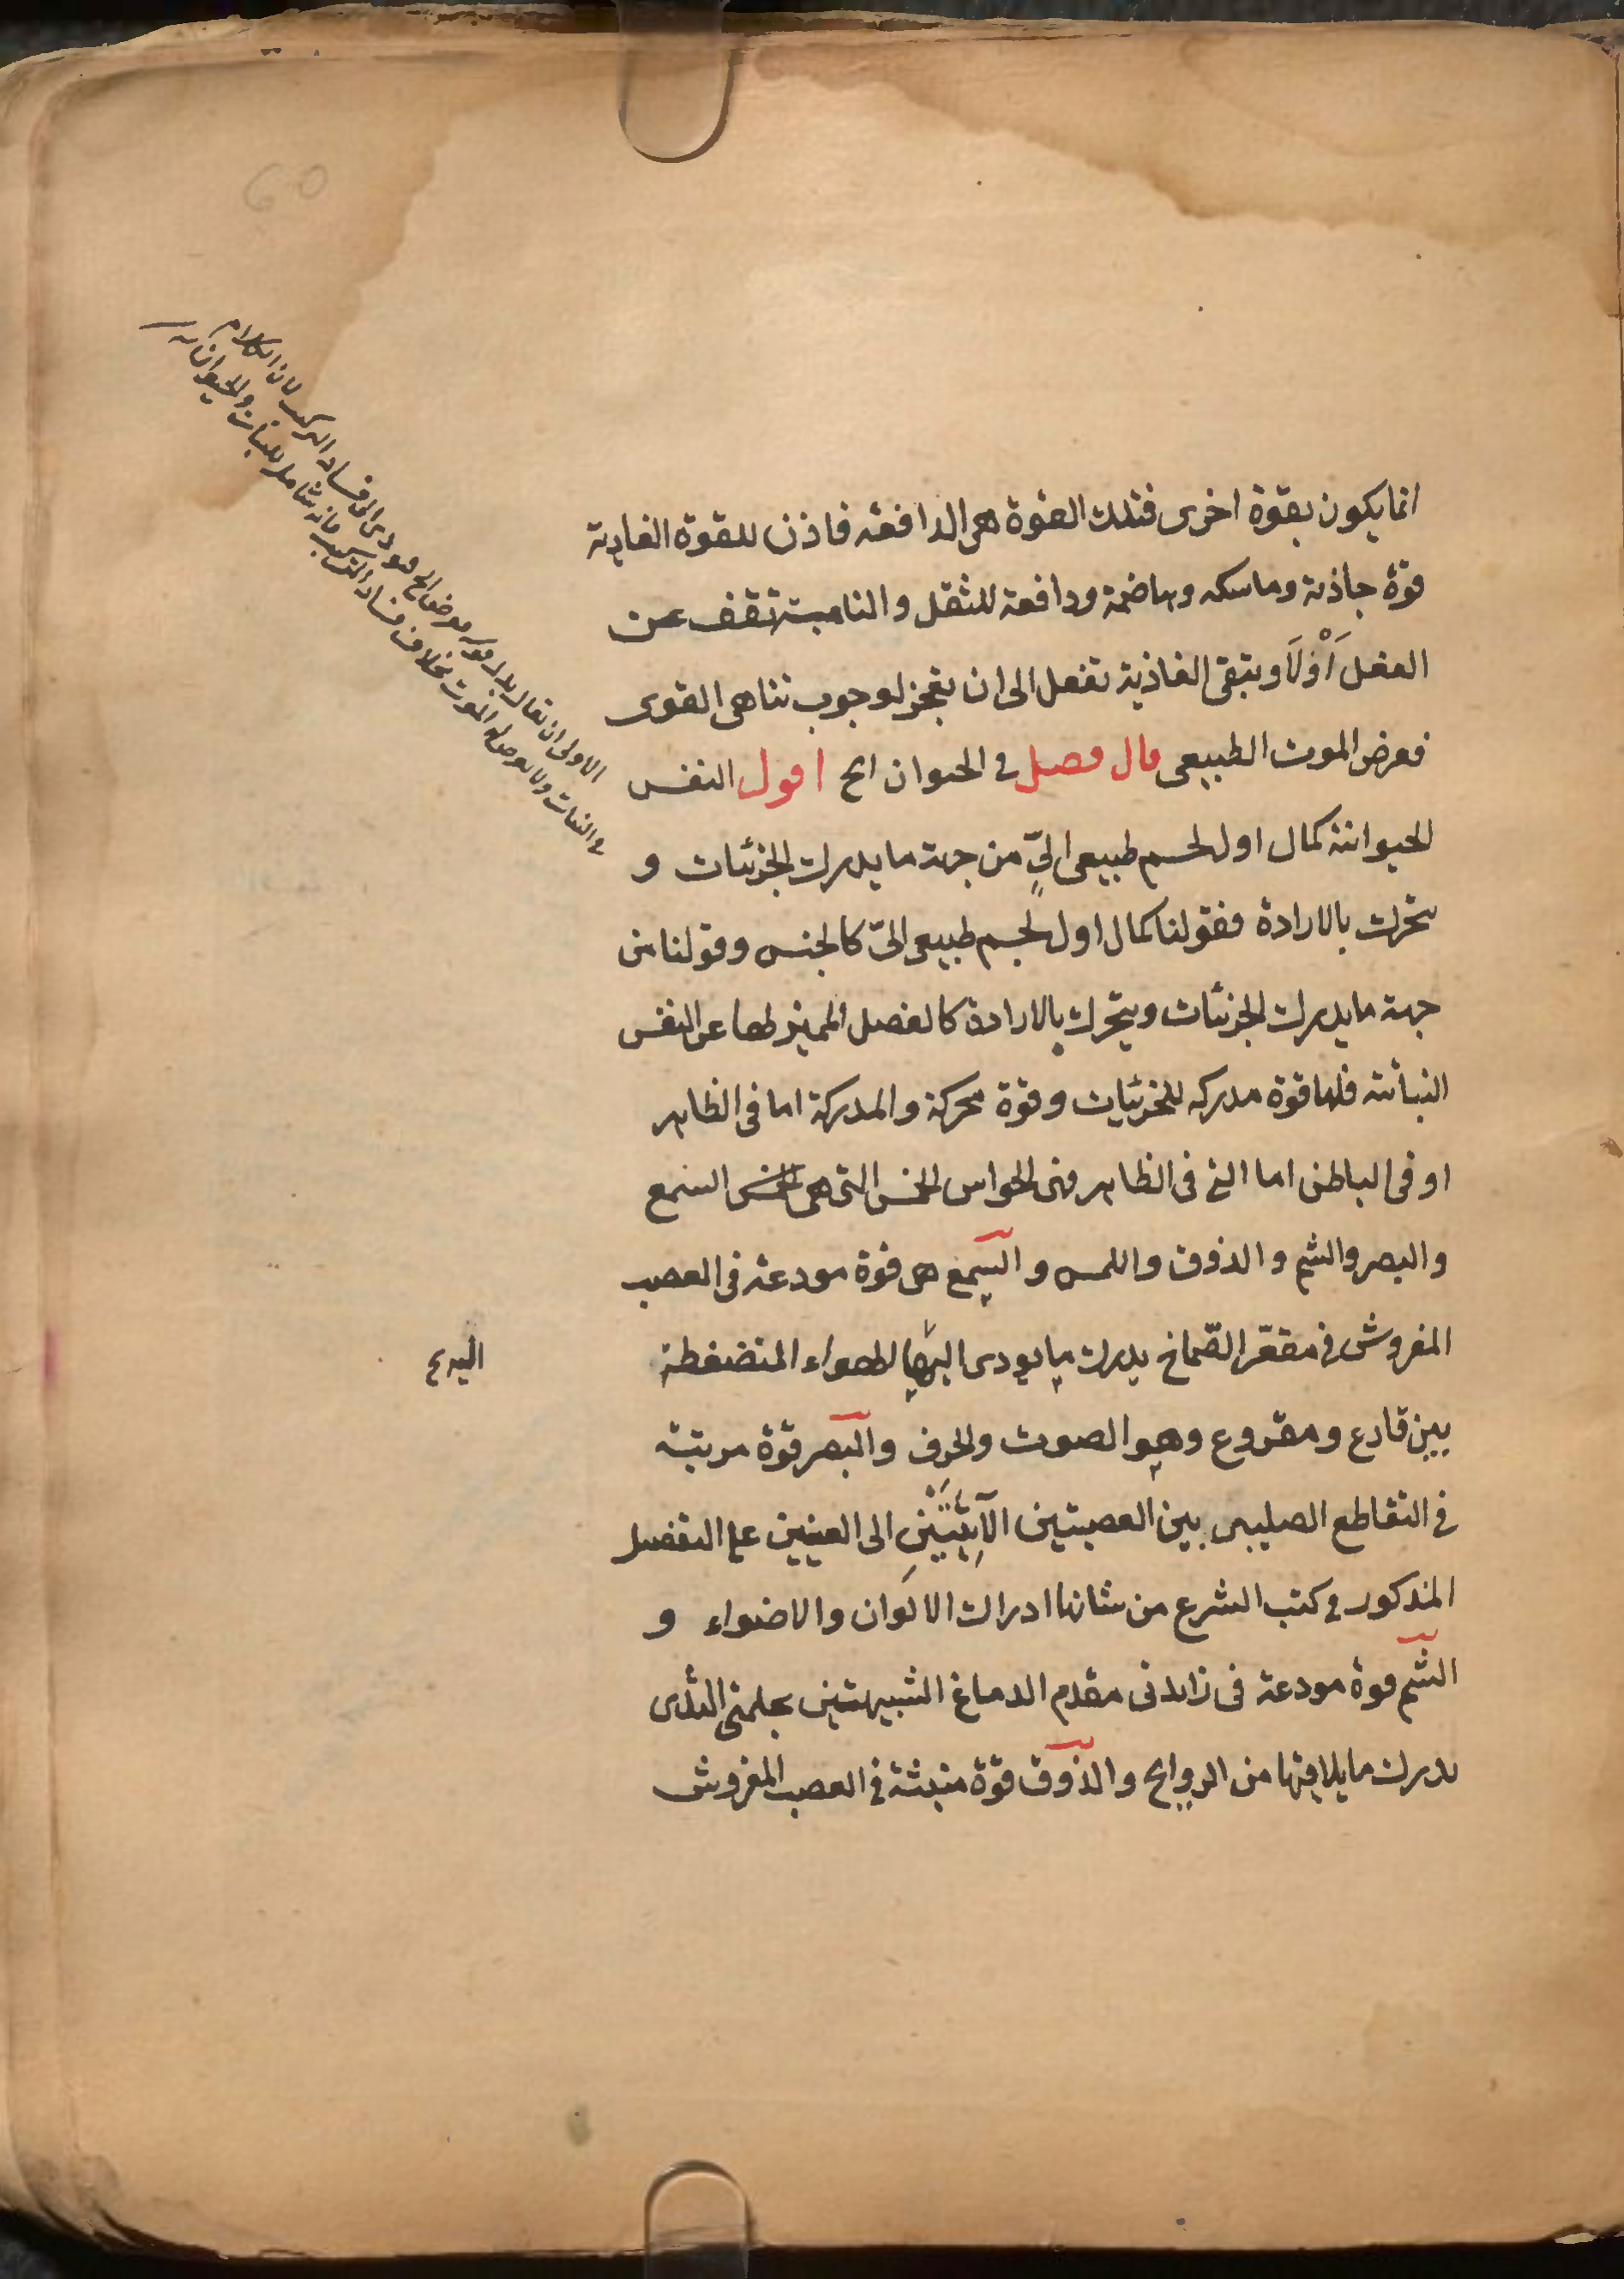 انما يكون بقوة اخرى فتلك القوة هى الدافعة فاذن للقوة الغاذية
قوة جاذبة وماسكه وهاضمة ودافعة للثقل والنامية تقف عن
الفعل أوّلا وتبقى الغاذية تفعل الى ان تعجز لوجوب تناهى القوى
فعرض الموت الطبيعى قال فصل فى الحيوان الخ اقول النفس
الحيوانية كمال اول لجسم طبيعى الىّ من جهة ما يدرك الجزئيات و
يتحرك بالارادة فقولنا كمال اول لجسم طبيعى الىّ كالجنس وقولنا من
جهة ما يدرك الجزئيات ويتحرك بالارادة كالفصل المميز لها عن النفس
النباتية فلها قوة مدركه للجزئيات وقوة محركة والمدركة اما فى الظاهر
او فى الباطن اما التى فى الظاهر فهى الحواس الخمس التى هى السمع
والبصر والشم والذوق واللمس والسمع هى قوة مودعة فى العصب
المفروش فى مقعّر الصّماخ يدرك ما يودى اليها الهواء المنضغطة
بين قارع ومقروع وهو الصوت والحرف والبصر قوة مرتبة
فى التقاطع الصليبى بين العصبتين الآتيتين الى العينين على التفصيل
المذكور فى كتب الشرع من شانها ادراك الالوان والاضواء و
الشم قوة مودعة فى زايدتى مقدم الدماغ الشبيهتين بحلمتى الثدى
يدرك ما يلاقيها من الروايح والذوق قوة منبثة فى العصب المفروش
الاولى ان يقال بدل قوله فعرض الخ فيودى الى فساد التركيب لان الكلام
فى النبات ولا يعرض له الموت بخلاف فساد التركيب فانه شامل للنبات والحيوان